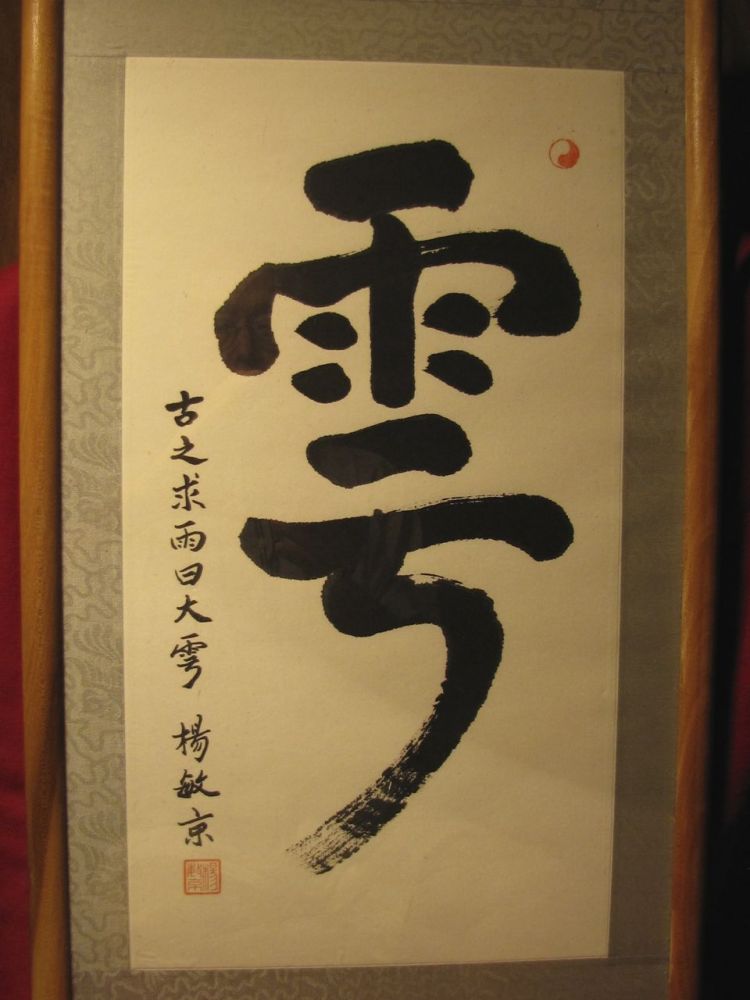 雩
古之求雨曰大雩 楊敏京